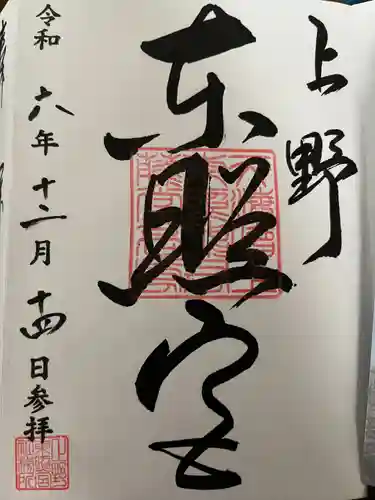 上野
東照宮
令和六年十二月十四日参拝